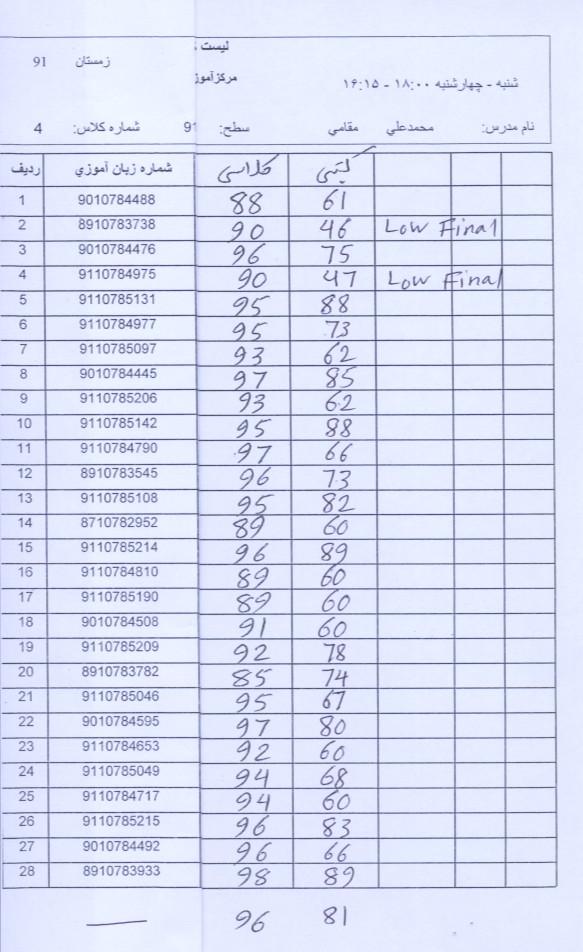 لیست
زمستان 91
مرکزآموز
شنبه - چهارشنبه ۱۸:۰۰ - ۱۶:۱۵
نام مدرس: محمدعلي مقامي سطح: 91 شماره کلاس: 4
ردیف شماره زبان آموزي کلاسی کتبی
1 9010784488 88 61
2 8910783738 90 46 Low Final
3 9010784476 96 75
4 9110784975 90 47 Low Final
5 9110785131 95 88
6 9110784977 95 73
7 9110785097 93 62
8 9010784445 97 85
9 9110785206 93 62
10 9110785142 95 88
11 9110784790 97 66
12 8910783545 96 73
13 9110785108 95 82
14 8710782952 89 60
15 9110785214 96 89
16 9110784810 89 60
17 9110785190 89 60
18 9010784508 91 60
19 9110785209 92 78
20 8910783782 85 74
21 9110785046 95 67
22 9010784595 97 80
23 9110784653 92 60
24 9110785049 94 68
25 9110784717 94 60
26 9110785215 96 83
27 9010784492 96 66
28 8910783933 98 89
96 81